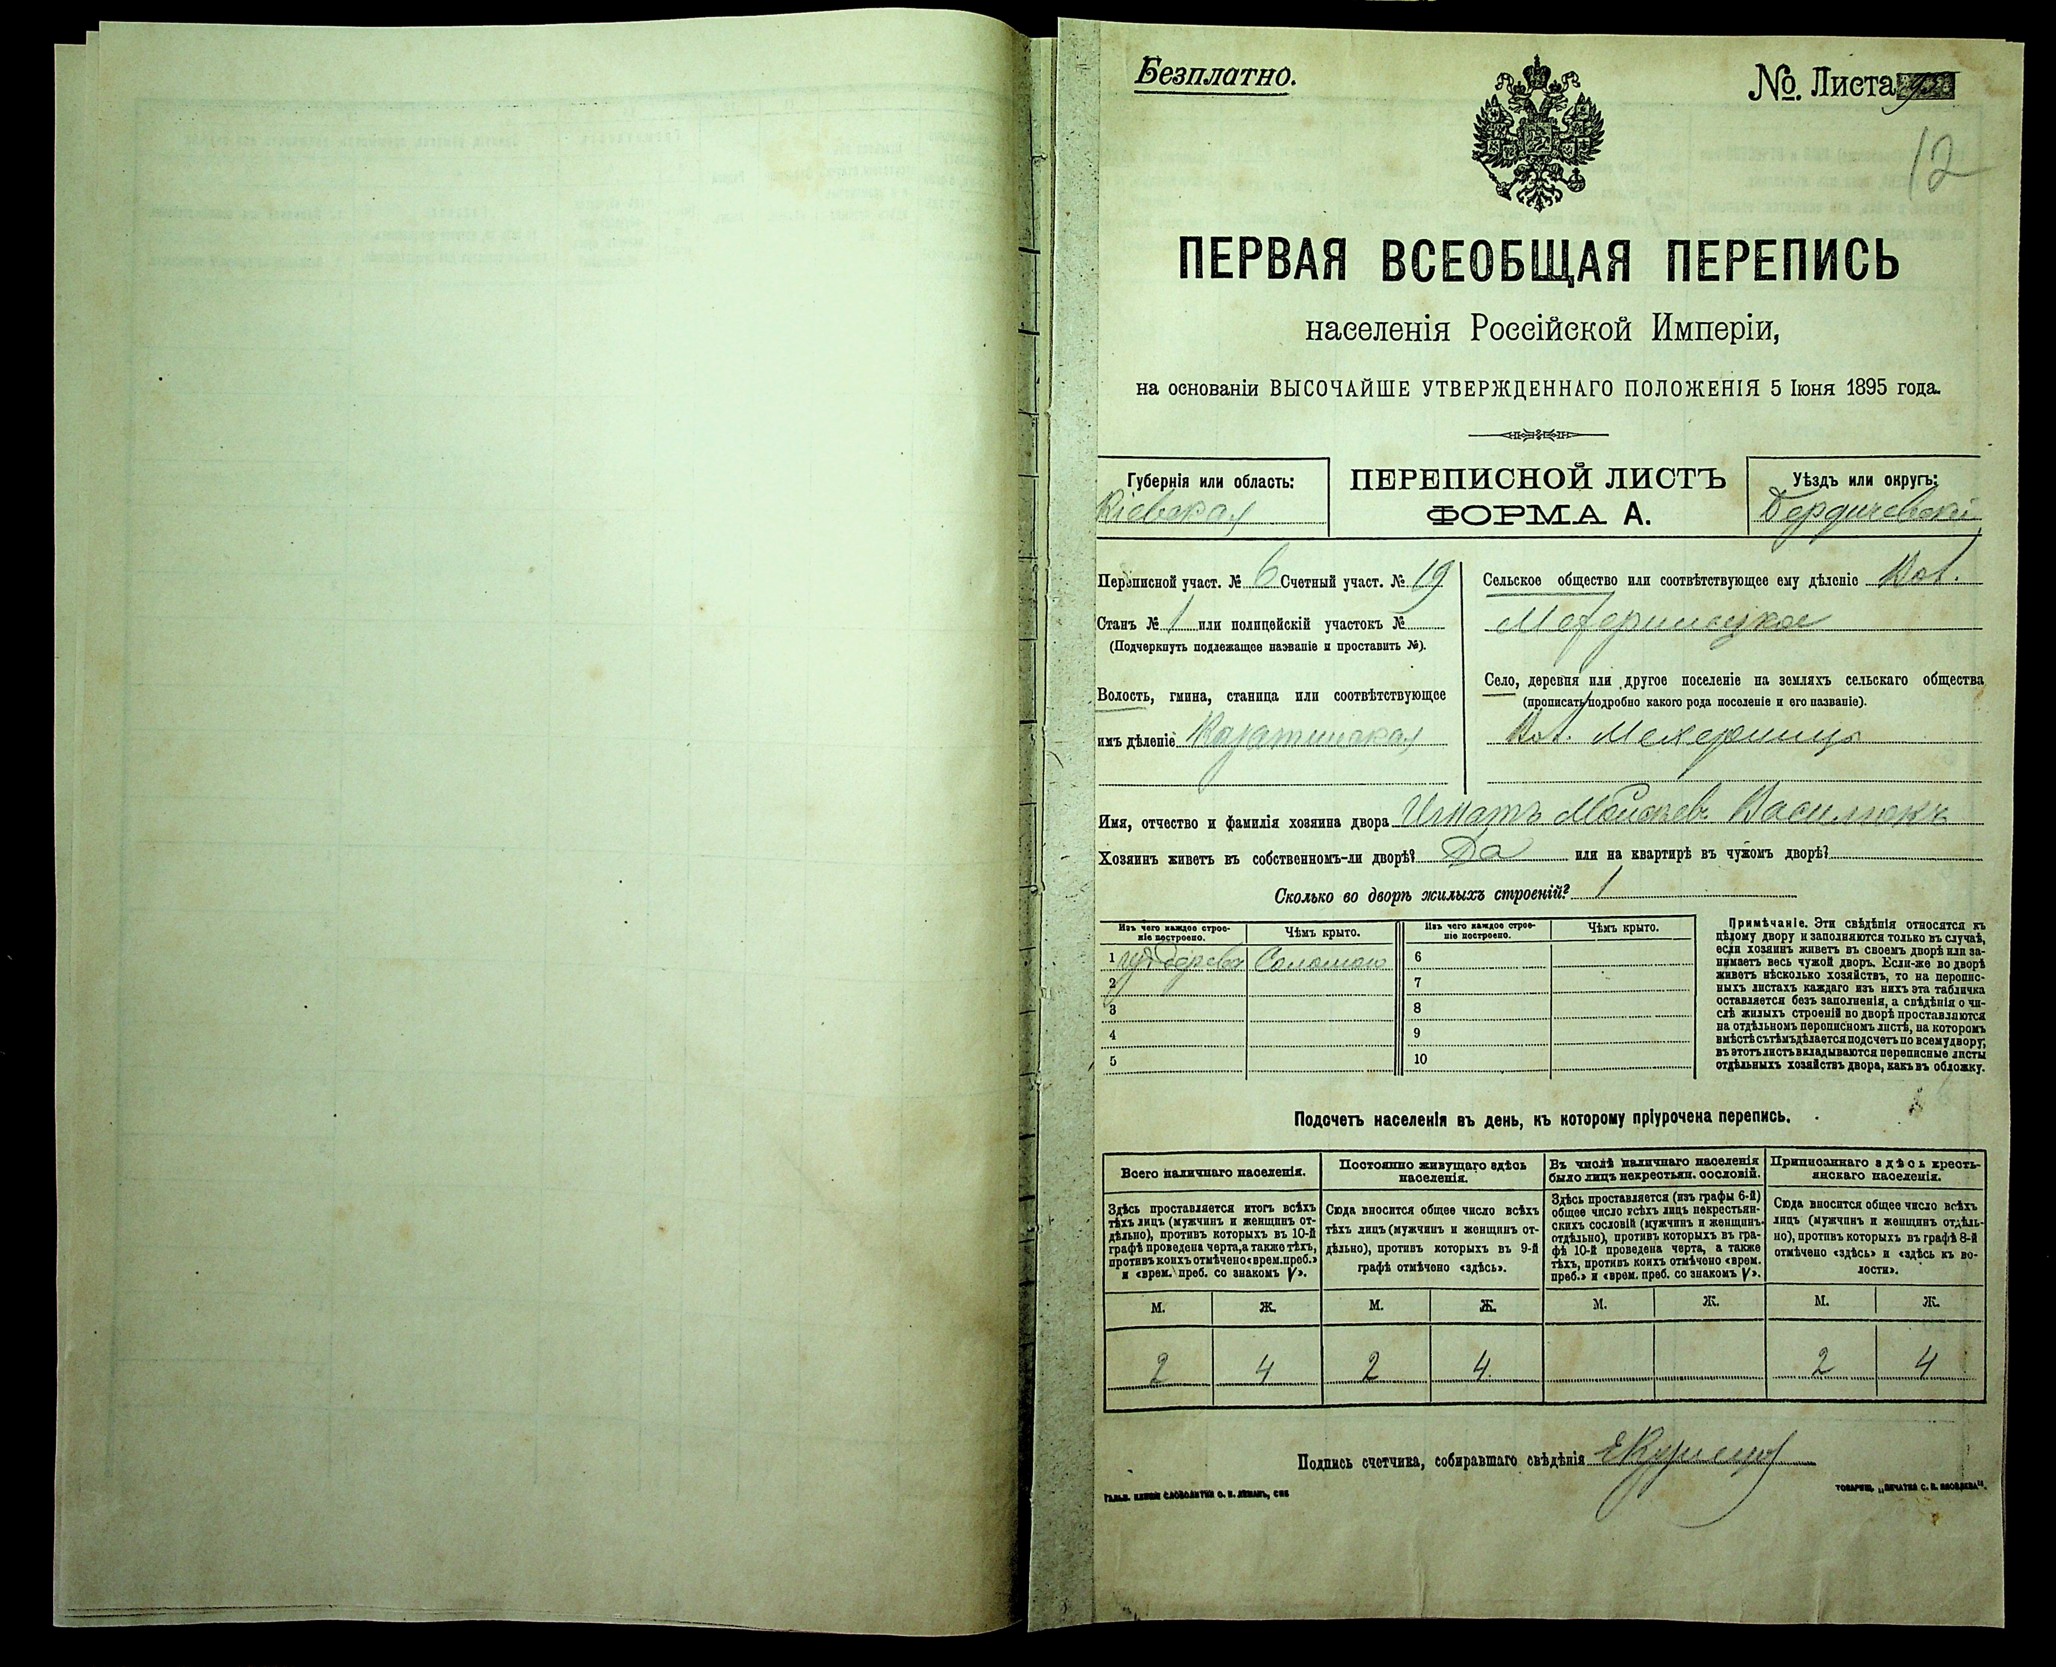 Безплатно.
№ Листа
12
ПЕРВАЯ ВСЕОБЩАЯ ПЕРЕПИСЬ
населенія Россійской Имперіи,
на основаніи ВЫСОЧАЙШЕ УТВЕРЖДЕННАГО ПОЛОЖЕНІЯ 5 Іюня 1895 года.
Губернія или область:
Кіевская
ПЕРЕПИСНОЙ ЛИСТЪ
ФОРМА А.
Уѣздъ или округъ:
Бердичевскій
Переписной участ. № 6 Счетный участ. № 19
Станъ № 1 или полицейскій участокъ №
(Подчеркнуть подлежащее названіе и проставить №).
Волость, гмина, станица или соотвѣтствующее
имъ дѣленіе Казатинская
Сельское общество или соотвѣтствующее ему дѣленіе
Село, деревня или другое поселеніе на земляхъ сельскаго общества
(прописать подробно какого рода поселеніе и его названіе).
Махеринцы
Имя, отчество и фамилія хозяина двора Игнатъ Моисѣевъ Василюкъ
Хозяинъ живетъ въ собственномъ-ли дворѣ? Да или на квартирѣ въ чужомъ дворѣ?
Сколько во дворѣ жилыхъ строеній? 1
Изъ чего каждое строе-
ніе построено.
Чѣмъ крыто.
Изъ чего каждое строе-
ніе построено.
Чѣмъ крыто.
1 изъ дерева Соломою 6
2 7
3 8
4 9
5 10
Примѣчаніе. Эти свѣдѣнія относятся къ
цѣлому двору и заполняются только въ случаѣ,
если хозяинъ живетъ въ своемъ дворѣ или за-
нимаетъ весь чужой дворъ. Если-же во дворѣ
живетъ нѣсколько хозяйствъ, то на перепис-
ныхъ листахъ каждаго изъ нихъ эта табличка
оставляется безъ заполненія, а свѣдѣнія о чи-
слѣ жилыхъ строеній во дворѣ проставляются
на отдѣльномъ переписномъ листѣ, на которомъ
вмѣстѣ съ тѣмъ дѣлается подсчетъ по всему двору;
въ этотъ листъ вкладываются переписные листы
отдѣльныхъ хозяйствъ двора, какъ въ обложку.
Подсчетъ населенія въ день, къ которому пріурочена перепись.
Всего наличнаго населенія.
Здѣсь проставляется итогъ всѣхъ
тѣхъ лицъ (мужчинъ и женщинъ от-
дѣльно), противъ которыхъ въ 10-й
графѣ проведена черта, а также тѣхъ,
противъ коихъ отмѣчено «врем. преб.»
и «врем. преб. со знакомъ V».
Постоянно живущаго здѣсь
населенія.
Сюда вносится общее число всѣхъ
тѣхъ лицъ (мужчинъ и женщинъ от-
дѣльно), противъ которыхъ въ 9-й
графѣ отмѣчено «здѣсь».
Въ числѣ наличнаго населенія
было лицъ некрестьян. сословій.
Здѣсь проставляется (изъ графы 6-й)
общее число всѣхъ лицъ некрестьян-
скихъ сословій (мужчинъ и женщинъ
отдѣльно), противъ которыхъ въ гра-
фѣ 10-й проведена черта, а также
тѣхъ, противъ коихъ отмѣчено «врем.
преб.» и «врем. преб. со знакомъ V».
Приписаннаго здѣсь кресть-
янскаго населенія.
Сюда вносится общее число всѣхъ
лицъ (мужчинъ и женщинъ отдѣль-
но), противъ которыхъ въ графѣ 8-й
отмѣчено «здѣсь» и «здѣсь къ во-
лости».
М. Ж. М. Ж. М. Ж. М. Ж.
2 4 2 4 2 4
Подпись счетчика, собиравшаго свѣдѣнія
ТОВАРИЩ. „ПЕЧАТНЯ С. П. ЯКОВЛЕВА“.